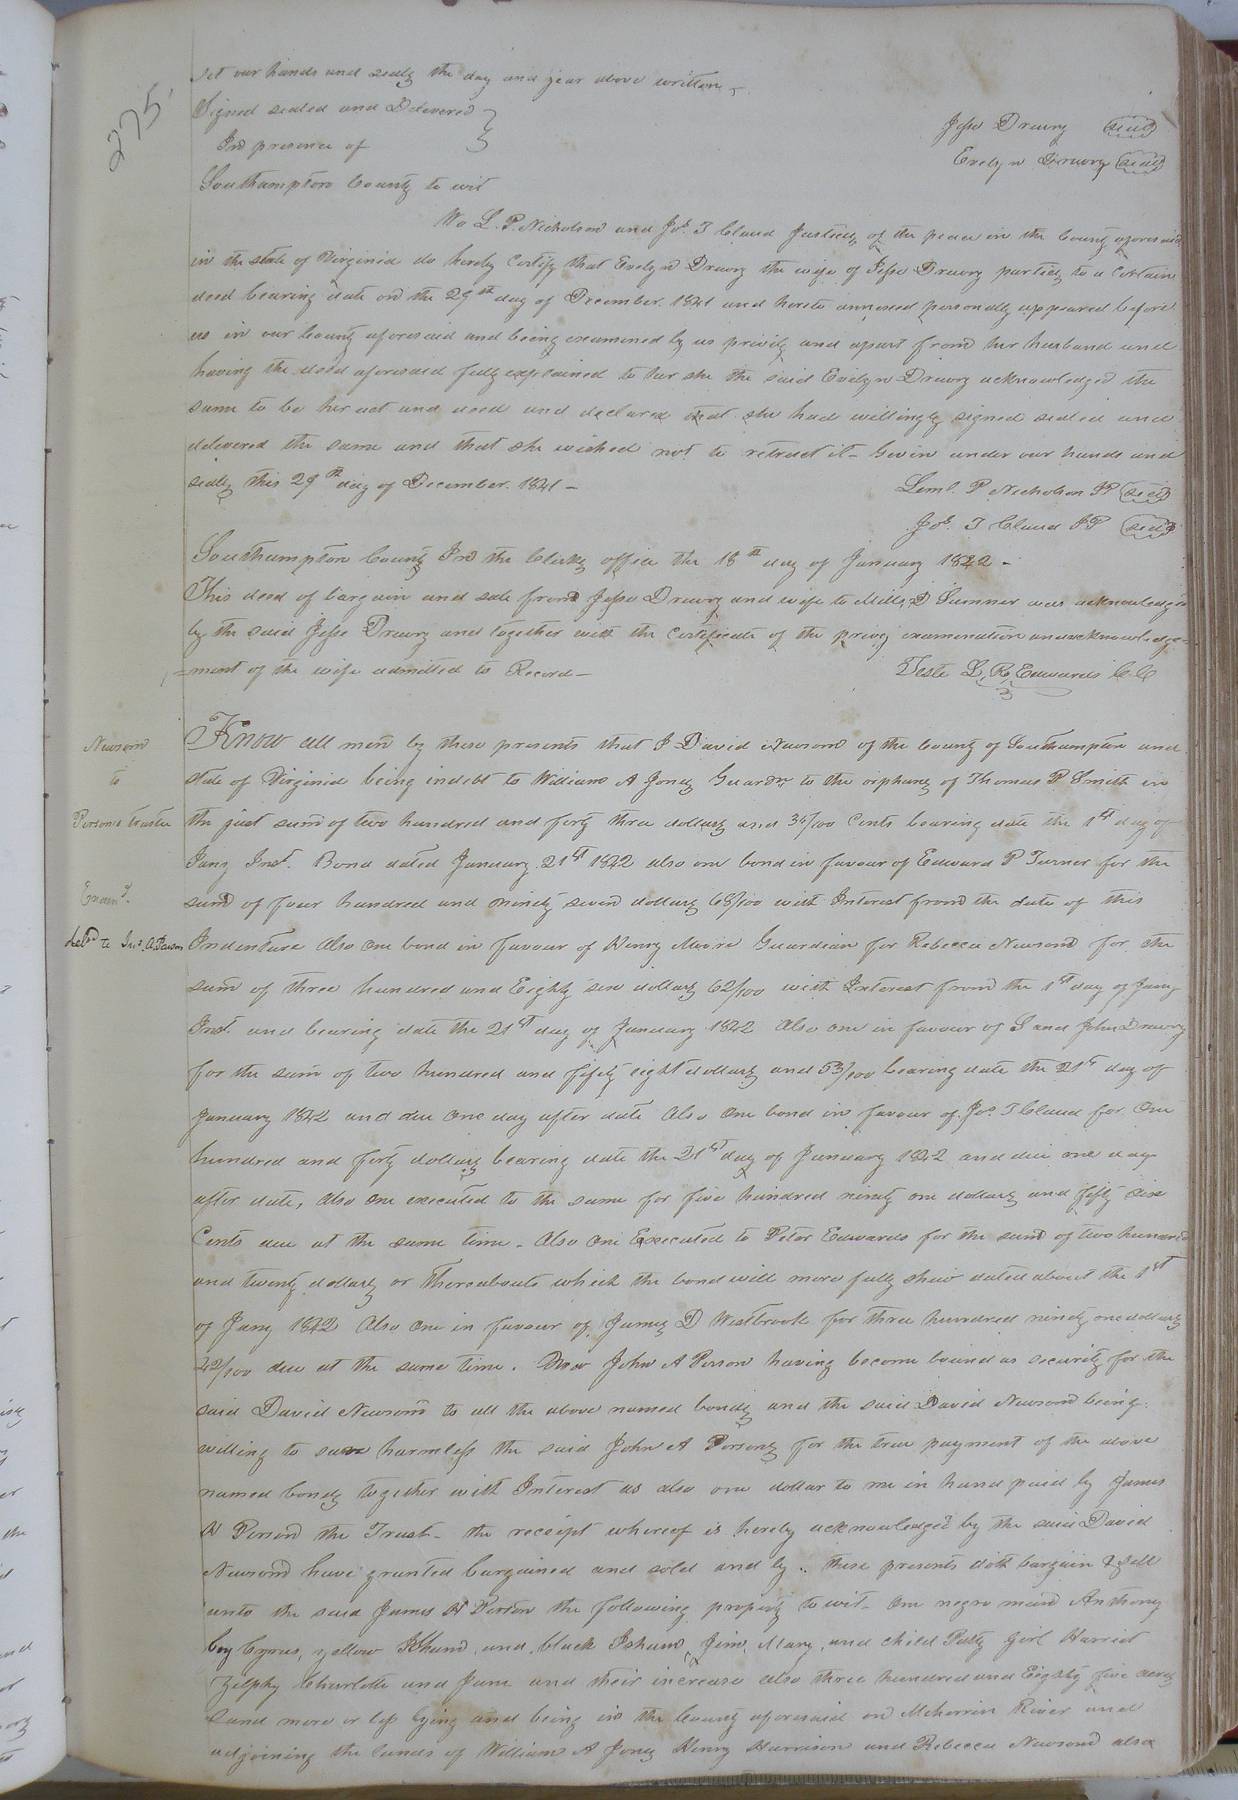 275
set our hands and seals the day and year above written
Signed sealed and Delivered
In presence of
Jesse Drewry (seal)
Evelyn Drewry (seal)
Southampton County to wit
We L. P. Nicholson and Jos. T Claud Justices of the peace in the County aforesaid
in the state of Virginia do hereby Certify that Evelyn Drewry the wife of Jesse Drewry parties to a Certain
deed bearing date on the 29th day of December 1841 and hereto annexed personally appeared before
us in our County aforesaid and being examined by us privily and apart from her husband and
having the deed aforesaid fully explained to her she the said Evelyn Drewry acknowledged the
same to be her act and deed and declared that she had willingly signed sealed and
delivered the same and that she wished not to retract it - Given under our hands and
seals this 29th day of December 1841 -
Leml. P Nicholson JP (seal)
Jos. T Claud JP (seal)
Southampton County In the Clerks office the 18th day of January 1842 -
This deed of bargain and sale from Jesse Drewry and wife to Mills D Sumner was acknowledged
by the said Jesse Drewry and together with the Certificate of the privy examination and acknowledge-
=ment of the wife admitted to Record -
Teste L. R. Edwards C.C
Newsom
to
Persons trustee
Examd.
deld to Jno. A. Person
Know all men by these presents that I David Newsom of the County of Southampton and
state of Virginia being indebt to William A Jones Guardn to the orphans of Thomas P Smith in
the just sum of two hundred and forty three dollars and 34/100 Cents bearing date the 1st day of
Jany Inst. Bond dated January 21st 1842 also one bond in favour of Edward P Turner for the
sum of four hundred and ninety seven dollars 68/100 with Interest from the date of this
Indenture Also one bond in favour of Henry Moore Guardian for Rebecca Newsom for the
sum of three hundred and Eighty six dollars 62/100 with Interest from the 1st day of Jany
Inst. and bearing date the 21st day of January 1842 Also one in favour of S and John Drewry
for the sum of two hundred and fifty eight dollars and 53/100 bearing date the 21st day of
January 1842 and due one day after date Also one bond in favour of Jos T Claud for One
hundred and forty dollars bearing date the 21st day of January 1842 and due one day
after date, also one executed to the same for five hundred ninety one dollars and fifty six
Cents due at the same time - Also one Executed to Peter Edwards for the sum of two hundred
and twenty dollars or thereabouts which the bond will more fully shew dated about the 1st
of Jany 1842 Also one in favour of James D Westbrook for three hundred ninety one dollars
42/100 due at the same time. Now John A Person having become bound as security for the
said David Newsom to all the above named bonds and the said David Newsom being
willing to save harmless the said John A Persons for the true payment of the above
named bonds together with Interest as also one dollar to me in hand paid by James
H Person the Trust - the receipt whereof is hereby acknowledged by the said David
Newsom have granted bargained and sold and by .. these presents doth bargain & sell
unto the said James H Person the following property to wit - One negro man Anthony
boy Cyrus, yellow Isham, and, black Isham, Jim, Mary, and child Patty girl Harriet
Zilphy Charlotte and Jane and their increase also three hundred and Eighty five acres
Land more or less lying and being in the County aforesaid on Meherrin River and
adjoining the lands of William A Jones Henry Harrison and Rebecca Newsom also